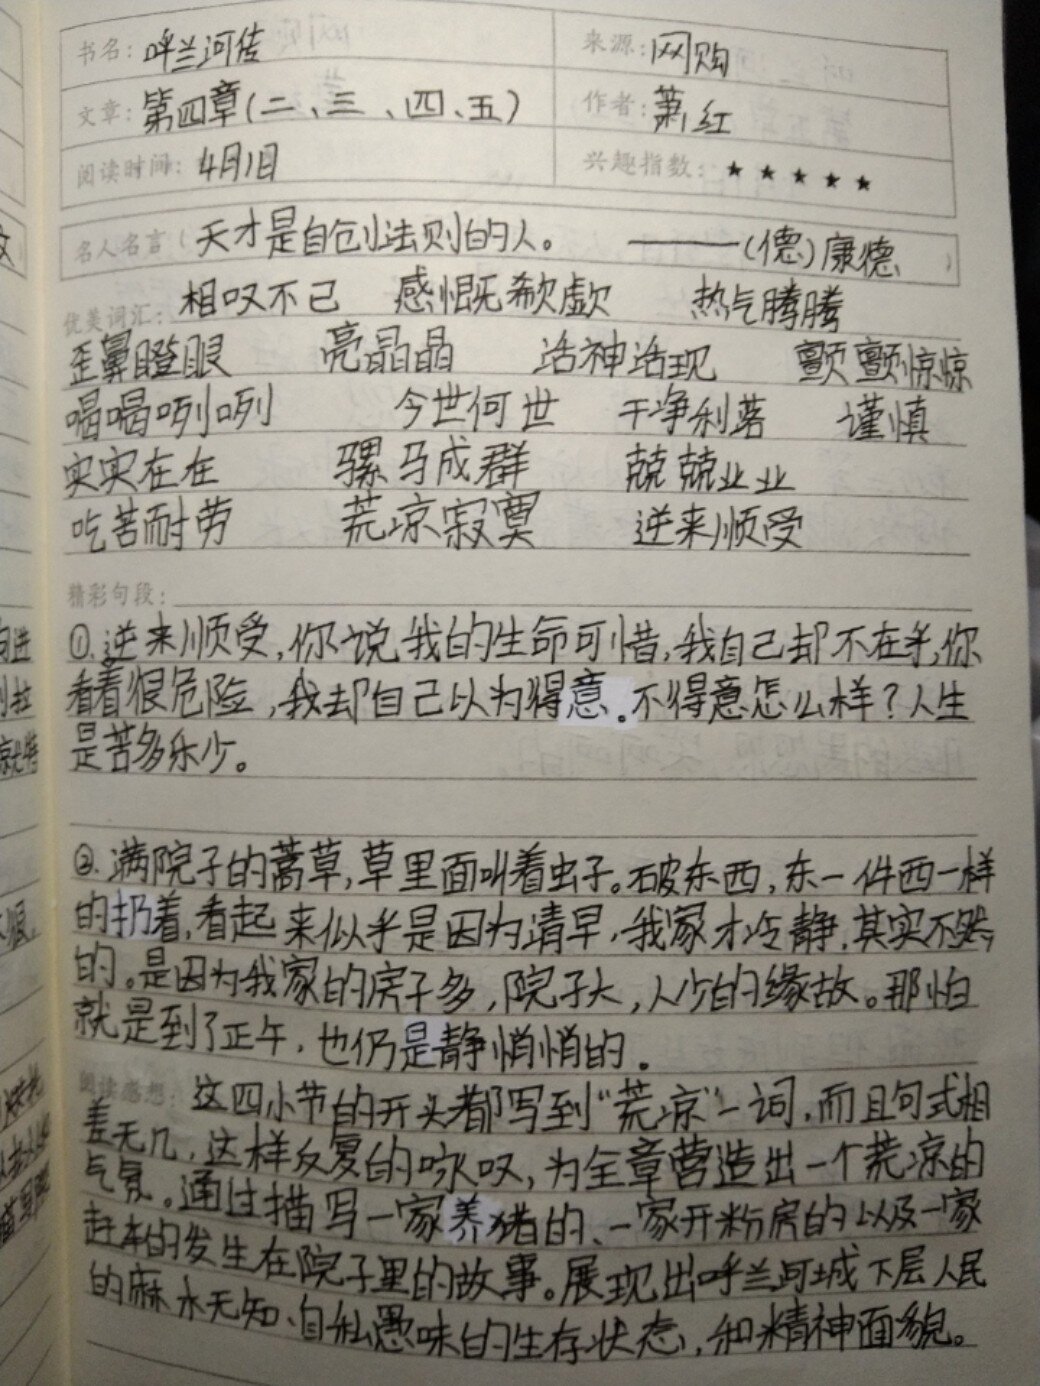 书名: 呼兰河传 来源: 网购
文章: 第四章(二、三、四、五) 作者: 萧红
阅读时间: 4月1日 兴趣指数: ★★★★★
名人名言( 天才是自创法则的人。 ——(德)康德 )
优美词汇: 相叹不已 感慨欷歔 热气腾腾
歪鼻瞪眼 亮晶晶 活神活现 颤颤惊惊
喝喝咧咧 今世何世 干净利落 谨慎
实实在在 骡马成群 兢兢业业
吃苦耐劳 荒凉寂寞 逆来顺受
精彩句段:
①.逆来顺受,你说我的生命可惜,我自己却不在乎,你
看着很危险,我却自己以为得意。不得意怎么样?人生
是苦多乐少。
②.满院子的蒿草,草里面叫着虫子。破东西,东一件西一样
的扔着,看起来似乎是因为清早,我家才冷静,其实不然
的。是因为我家的房子多,院子大,人少的缘故。那怕
就是到了正午,也仍是静悄悄的。
阅读感想: 这四小节的开头都写到“荒凉”一词,而且句式相
差无几,这样反复的咏叹,为全章营造出一个荒凉的
气氛。通过描写一家养猪的、一家开粉房的以及一家
赶车的发生在院子里的故事。展现出呼兰河城下层人民
的麻木无知、自私愚昧的生存状态,和精神面貌。